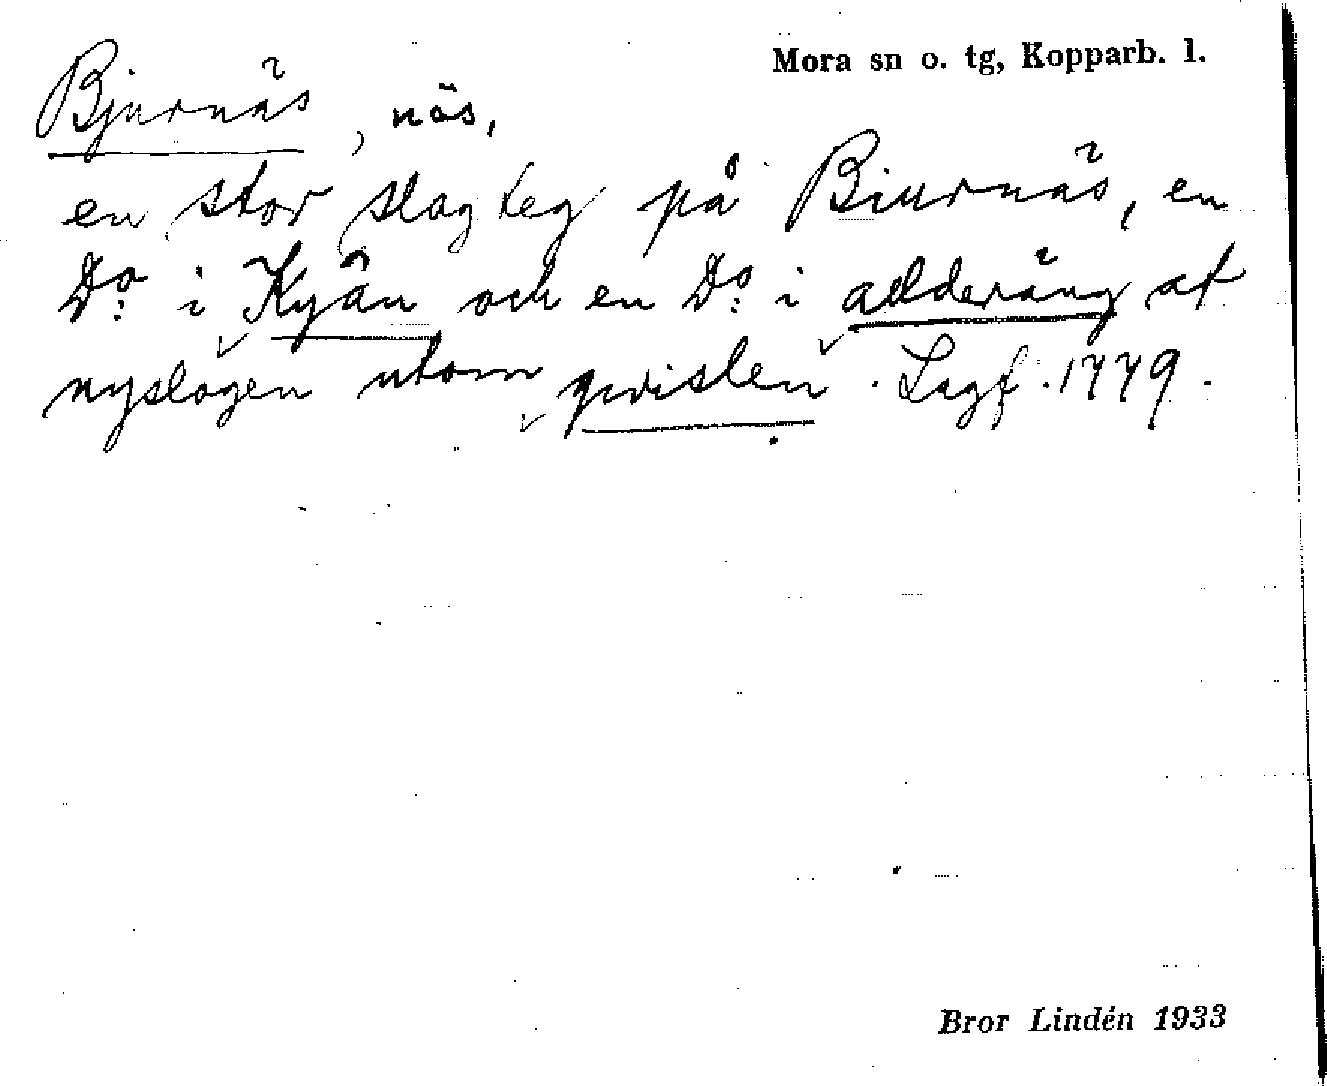 Mora sn o. tg, Kopparb. l.
Bjurnäs, näs,
en stor slagteg på Biurnäs, en
Do: i Kyån och en Do: i alderäng at
nyslogen utom qvislen. Lagf. 1779.
Bror Lindén 1933